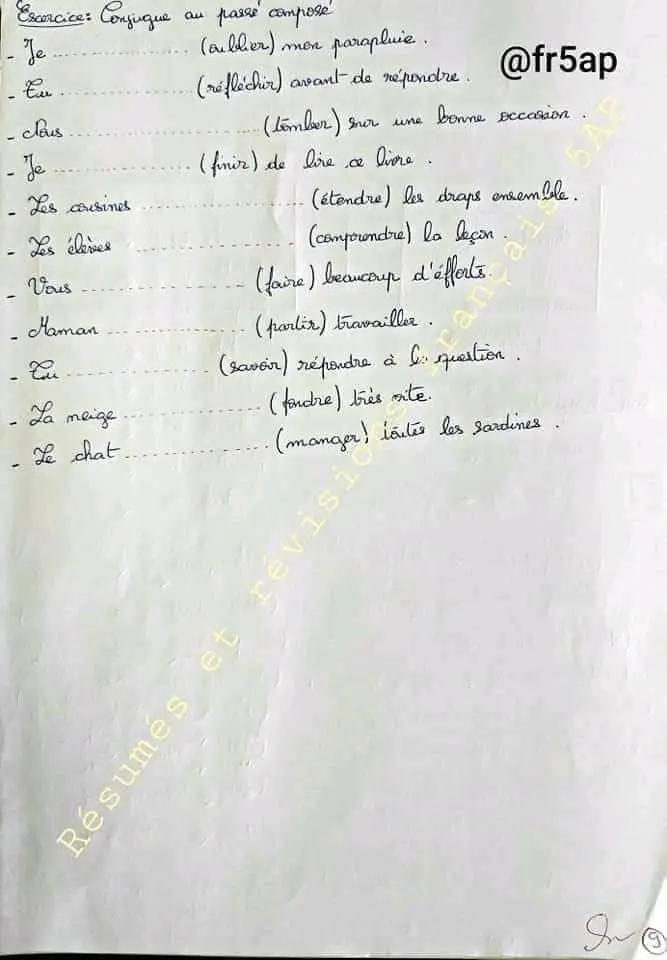 Exercice: Conjugue au passé composé
@fr5ap
- Je .................. (oublier) mon parapluie.
- Tu .................. (réfléchir) avant de répondre.
- Nous .................. (tomber) sur une bonne occasion.
- Je .................. (finir) de lire ce livre.
- Les cousines .................. (étendre) les draps ensemble.
- Les élèves .................. (comprendre) la leçon.
- Vous .................. (faire) beaucoup d'éfforts.
- Maman .................. (partir) travailler.
- Tu .................. (savoir) répondre à la question.
- La neige .................. (fondre) très vite.
- Le chat .................. (manger) toutes les sardines.
Résumés et révisions français 5AP
9